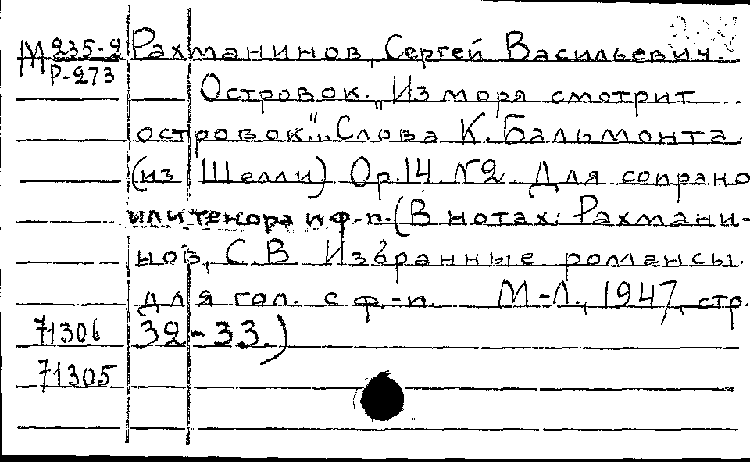 М 235-2 Рахманинов, Сергей Васильевич.
Р-273
Островок. "Из моря смотрит
островок.". Слова К. Бальмонта
(из Шелли) Op. 14 №2. Для сопрано
или тенора и ф-п. (В нотах: Рахмани-
нов, С.В. Избранные романсы
для гол. с ф.-п. М-Л., 1947, стр.
71306 32-33.)
71305